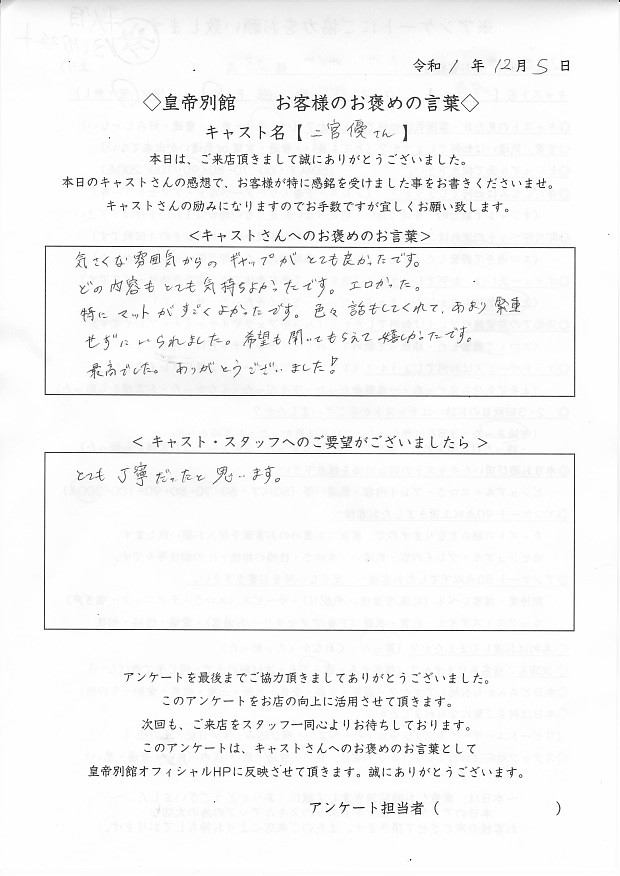 令和 1 年 12 月 5 日
◇皇帝別館 お客様のお褒めの言葉◇
キャスト名【 二宮優さん 】
本日は、ご来店頂きまして誠にありがとうございました。
本日のキャストさんの感想で、お客様が特に感銘を受けました事をお書きくださいませ。
キャストさんの励みになりますのでお手数ですが宜しくお願い致します。
<キャストさんへのお褒めのお言葉>
気さくな雰囲気からのギャップがとても良かったです。
どの内容もとても気持ちよかったです。エロかった。
特にマットがすごくよかったです。色々話もしてくれて、あまり緊張
せずにいられました。希望も聞いてもらえて嬉しかったです。
最高でした。ありがとうございました!
< キャスト・スタッフへのご要望がございましたら >
とても丁寧だったと思います。
アンケートを最後までご協力頂きましてありがとうございました。
このアンケートをお店の向上に活用させて頂きます。
次回も、ご来店をスタッフ一同心よりお待ちしております。
このアンケートは、キャストさんへのお褒めのお言葉として
皇帝別館オフィシャルHPに反映させて頂きます。誠にありがとうございます。
アンケート担当者( )